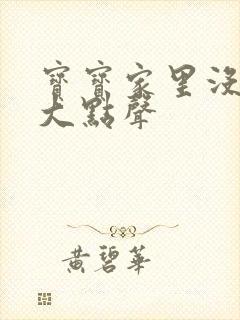 寶寶家里没
大點聲
黃碧華